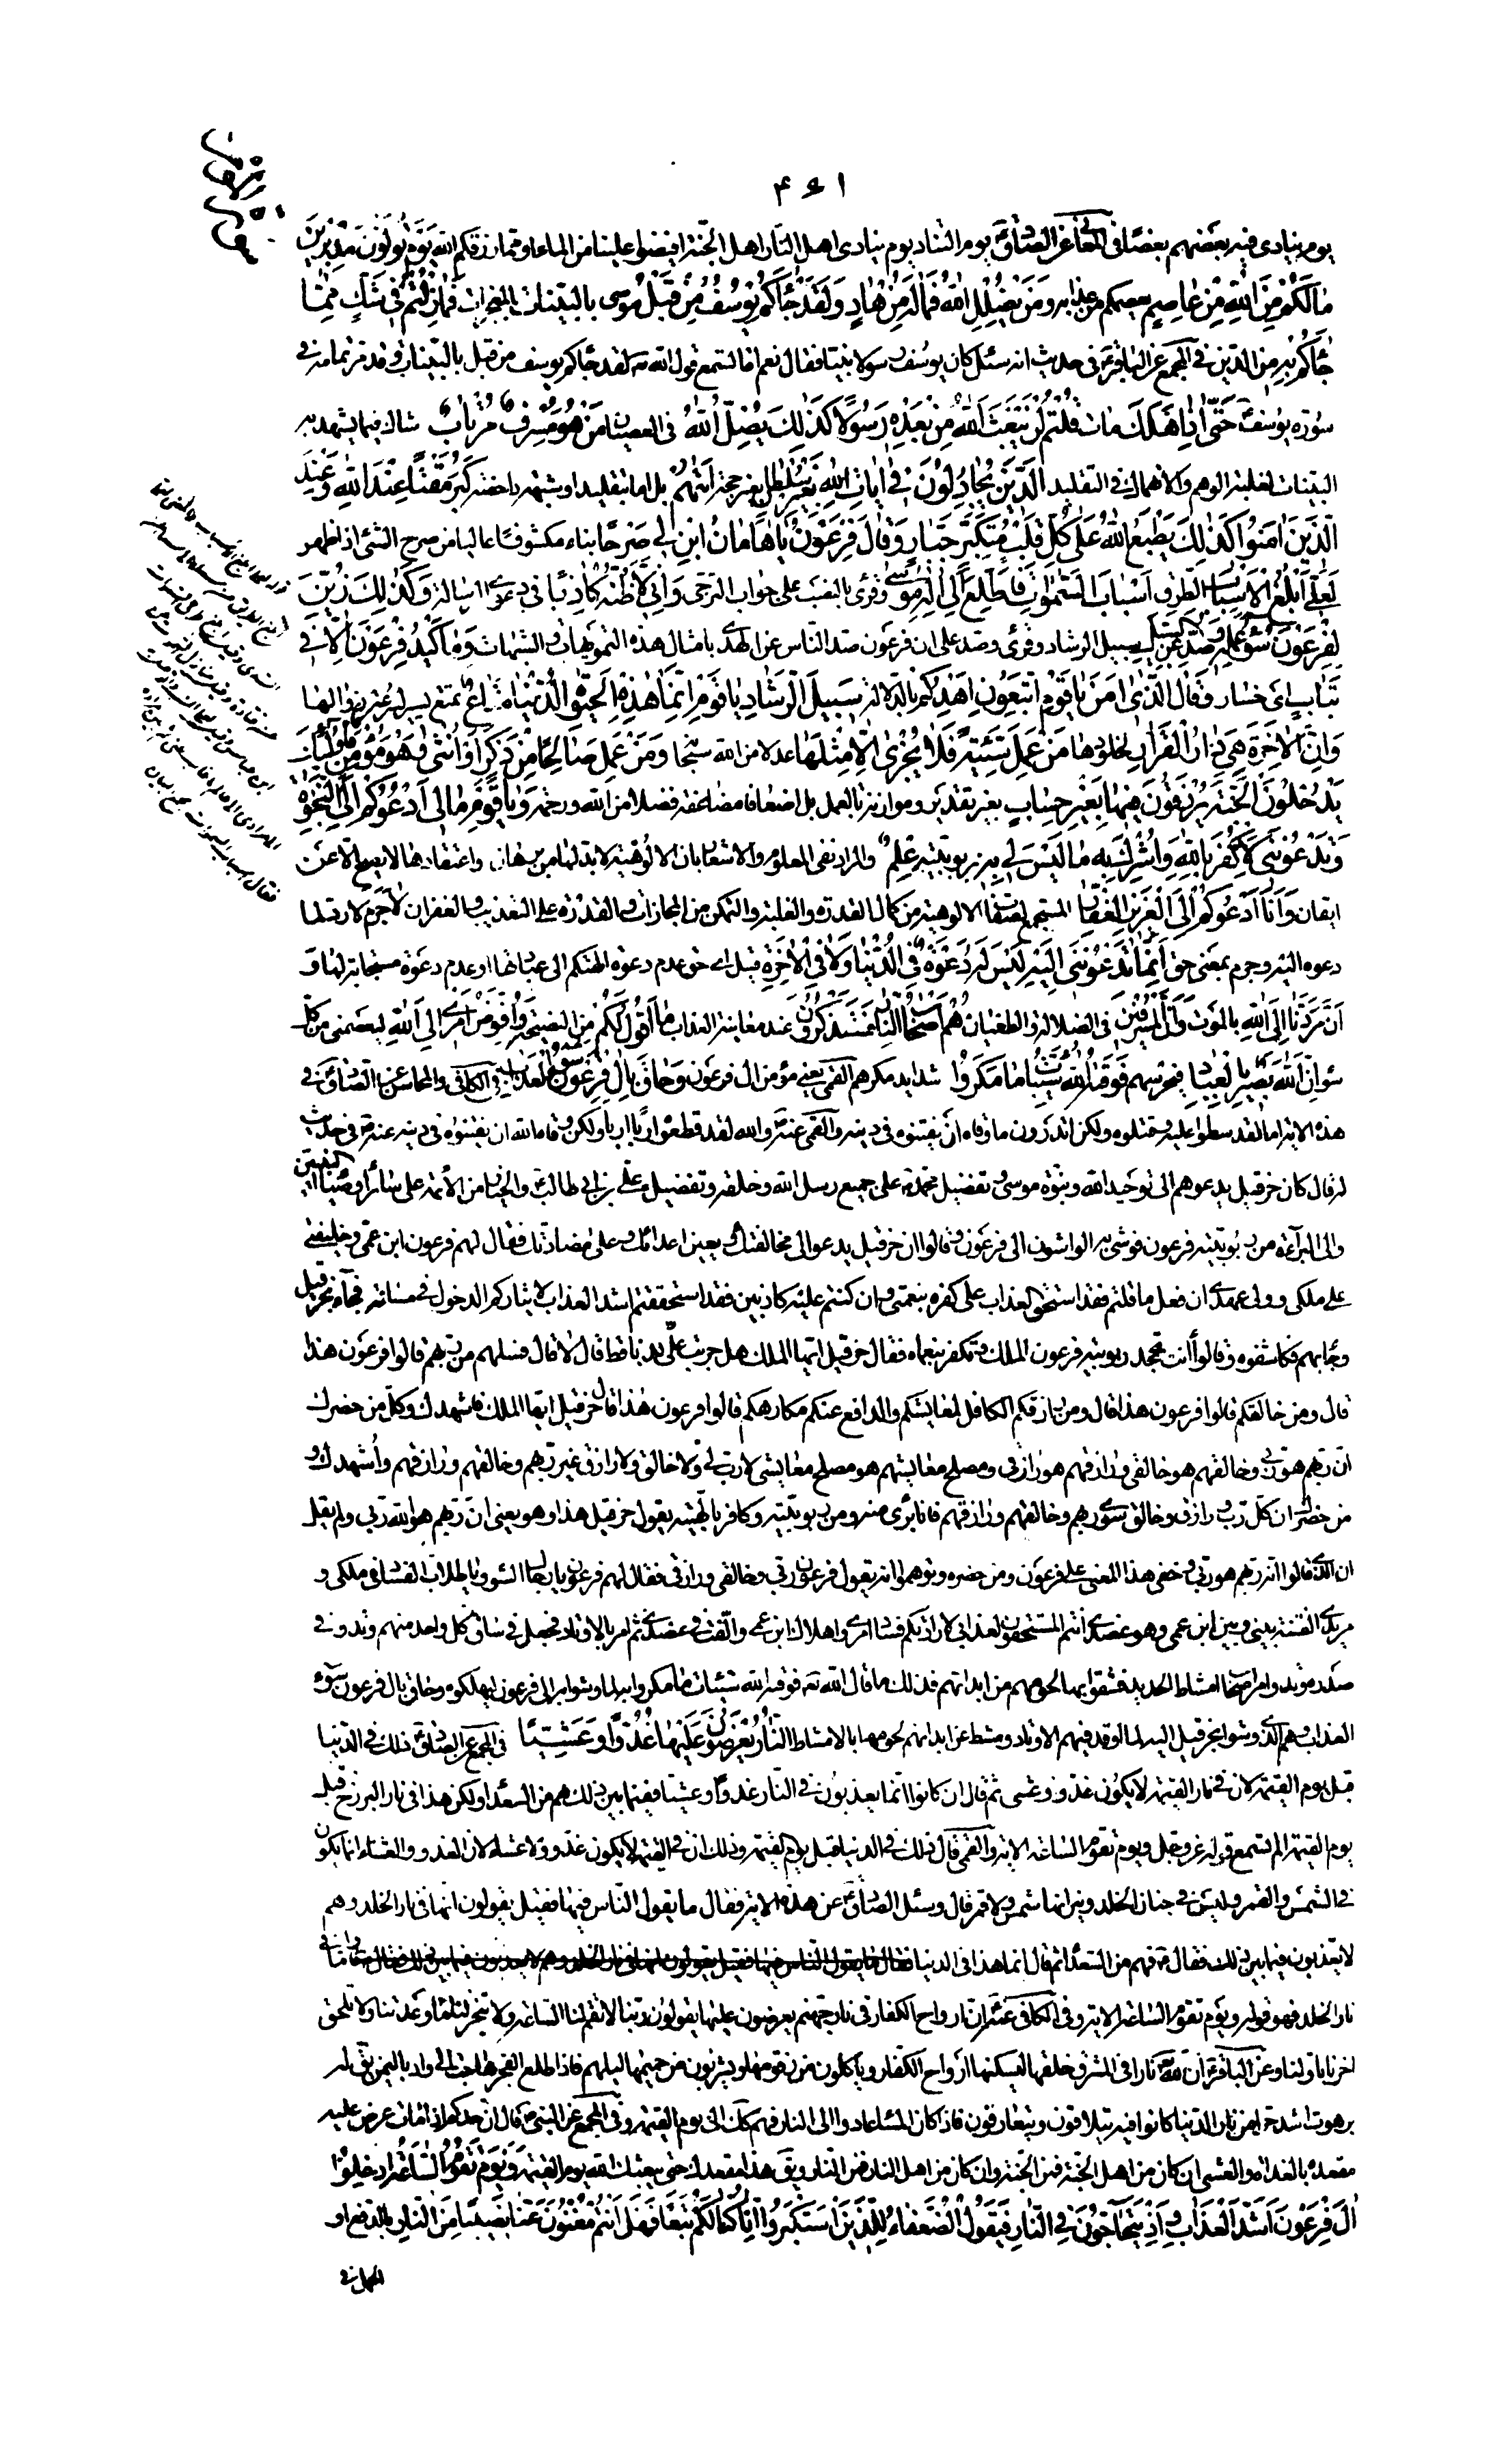 ٤٦١
يوم ينادى فيه بعضهم بعضًا فى المعانى عن الصادقؑ يوم التناد يوم ينادى اهل النار اهل الجنة افيضوا علينا من الماء او مما رزقكم الله يَوْمَ تُوَلُّونَ مُدْبِرِينَ
مٰا لَكُمْ مِنَ اللّٰهِ مِنْ عٰاصِمٍ يعصمكم من عذابه وَمَنْ يُضْلِلِ اللّٰهُ فَمٰا لَهُ مِنْ هٰادٍ وَلَقَدْ جٰاءَكُمْ يُوسُفُ مِنْ قَبْلُ موسى بالبيّنات بالمعجزات فَمٰا زِلْتُمْ فِى شَكٍّ مِمّٰا
جٰاءَكُمْ بِهِ من الدين فى المجمع عن الباقرؑ فى حديث انه سئل كان يوسف رسولا نبيّا فقال نعم اما تسمع قول الله تعـ لقد جاءكم يوسف من قبل بالبيّنات وقد مرّ تمامه فى
سورة يوسفؑ حَتّٰى اِذٰا هَلَكَ مات قُلْتُمْ لَنْ يَبْعَثَ اللّٰهُ مِنْ بَعْدِهِ رَسُولًا كَذٰلِكَ يُضِلُّ اللّٰهُ فى العصيان مَنْ هُوَ مُسْرِفٌ مُرْتٰابٌ شاك فيما يشهد به
البيّنات لغلبة الوهم والانهماك فى التقليد اَلَّذِينَ يُجٰادِلُونَ فِى اٰيٰاتِ اللّٰهِ بِغَيْرِ سُلْطٰانٍ بغير حجة اَتٰاهُمْ بل اما بتقليد او بشبهة داحضة كَبُرَ مَقْتًا عِنْدَ اللّٰهِ وَعِنْدَ
الَّذِينَ اٰمَنُوا كَذٰلِكَ يَطْبَعُ اللّٰهُ عَلٰى كُلِّ قَلْبِ مُتَكَبِّرٍ جَبّٰارٍ وَقٰالَ فِرْعَوْنُ يٰا هٰامٰانُ ابْنِ لِى صَرْحًا بناء مكشوفًا عاليا من صرح الشئ اذا ظهر
لَعَلِّى اَبْلُغُ الْاَسْبٰابَ الطرق اَسْبٰابَ السَّمٰوٰاتِ فَاَطَّلِعَ اِلٰى اِلٰهِ مُوسٰى وقرئ بالنصب على جواب الترجى وَاِنِّى لَاَظُنُّهُ كٰاذِبًا فى دعوى الرسالة وَكَذٰلِكَ زُيِّنَ
لِفِرْعَوْنَ سُوءُ عَمَلِهِ وَصُدَّ عَنِ السَّبِيلِ سبيل الرشاد وقرئ وصد على ان فرعون صد الناس عن الهدى بامثال هذه التمويهات والشبهات وَمٰا كَيْدُ فِرْعَوْنَ اِلّٰا فِى
تَبٰابٍ اى خسار وَقٰالَ الَّذِى اٰمَنَ يٰا قَوْمِ اتَّبِعُونِ اَهْدِكُمْ بالدلالة سَبِيلَ الرَّشٰادِ يٰا قَوْمِ اِنَّمٰا هٰذِهِ الْحَيٰوةُ الدُّنْيٰا مَتٰاعٌ تمتع يسير لسرعة زوالها
وَاِنَّ الْاٰخِرَةَ هِىَ دٰارُ الْقَرٰارِ لخلودها مَنْ عَمِلَ سَيِّئَةً فَلٰا يُجْزٰى اِلّٰا مِثْلَهٰا عدلا من الله سبحانه وَمَنْ عَمِلَ صٰالِحًا مِنْ ذَكَرٍ اَوْ اُنْثٰى وَهُوَ مُؤْمِنٌ فَاُولٰئِكَ
يَدْخُلُونَ الْجَنَّةَ يُرْزَقُونَ فِيهٰا بِغَيْرِ حِسٰابٍ بغير تقدير وموازنة بالعمل بل اضعافا مضاعفة فضلا من الله ورحمة وَيٰا قَوْمِ مٰا لِى اَدْعُوكُمْ اِلَى النَّجٰوةِ
وَتَدْعُونَنِى لِاَكْفُرَ بِاللّٰهِ وَاُشْرِكَ بِهِ مٰا لَيْسَ لِى بِهِ بربوبيته عِلْمٌ والمراد نفى المعلوم والاشعار بان الالوهية لا بد لها من برهان واعتقادها لا يصح الا عن
ايقان وَاَنَا اَدْعُوكُمْ اِلَى الْعَزِيزِ الْغَفّٰارِ المستجمع لصفات الالوهية من كمال القدرة والغلبة والتمكن من المجازات والقدرة على التعذيب والغفران لٰا جَرَمَ لا رد لما
دعوه اليه وجرم بمعنى حق اَنَّمٰا تَدْعُونَنِى اِلَيْهِ لَيْسَ لَهُ دَعْوَةٌ فِى الدُّنْيٰا وَلٰا فِى الْاٰخِرَةِ قيل اى حق عدم دعوة الهتكم الى عبادتها او عدم دعوة مستجابة لها وَ
اَنَّ مَرَدَّنٰا اِلَى اللّٰهِ بالموت وَاَنَّ الْمُسْرِفِينَ فى الضلالة والطغيان هُمْ اَصْحٰابُ النّٰارِ فَسَتَذْكُرُونَ عند معاينة العذاب مٰا اَقُولُ لَكُمْ من النصيحة وَاُفَوِّضُ اَمْرِى اِلَى اللّٰهِ ليعصمنى من كل
سوء اِنَّ اللّٰهَ بَصِيرٌ بِالْعِبٰادِ فيحرسهم فَوَقٰاهُ اللّٰهُ سَيِّئٰاتِ مٰا مَكَرُوا شدايد مكرهم القمى يعنى مؤمن ال فرعون وَحٰاقَ بِاٰلِ فِرْعَوْنَ سُوءُ الْعَذٰابِ فى الكافى والمحاسن عن الصادقؑ فى
هذه الاية اما لقد سطوا عليه وقتلوه ولكن اتدرون ما وقاه ان يفتنوه فى دينه والقمى عنهؑ والله لقد قطعوه اربا اربا ولكن وقاه الله ان يفتنوه فى دينه عنهؑ فى حديث
له قال كان حزقيل يدعوهم الى توحيد الله ونبوة موسى وتفضيل محمدؐ على جميع رسل الله وخلقه وتفضيل علىّ بن ابى طالبؑ والخيار من الائمة على سائر اوصياء النبيين
والى البراءة من ربوبية فرعون فوشى به الواشون الى فرعون وقالوا ان حزقيل يدعو الى مخالفتك ويعين اعدائك على مضادتك فقال لهم فرعون ابن عمى وخليفتى
على ملكى وولى عهدى ان فعل ما قلتم فقد استحق العذاب على كفره بنعمتى وان كنتم عليه كاذبين فقد استحققتم اشد العذاب لايثاركم الدخول فى مسائته فجاء بحزقيل
وجاء بهم فكاشفوه وقالوا أانت تجحد ربوبية فرعون الملك وتكفر بنعماه فقال حزقيل ايها الملك هل جربت علىّ كذبا قط قال لا قال فسلهم من ربهم قالوا فرعون هذا
قال ومن خالقكم قالوا فرعون هذا قال ومن رازقكم الكافل لمعايشكم والدافع عنكم مكارهكم قالوا فرعون هذا قال حزقيل ايها الملك فاشهدك وكل من حضرك
انّ ربهم هو ربى وخالقهم هو خالقى ورازقهم هو رازقى ومصلح معايشهم هو مصلح معايشى لا رب لى ولا خالق ولا رازق غير ربهم وخالقهم ورازقهم واُشهدك و
من حضرك ان كل ربّ ورازق وخالق سوى ربهم وخالقهم ورازقهم فانا برئ منه ومن ربوبيته وكافر بالهيته يقول حزقيل هذا وهو يعنى ان ربهم هو الله ربى ولم يقل
ان الذى قالوا انه ربهم هو ربى وخفى هذا المعنى على فرعون ومن حضره وتوهموا انه يقول فرعون ربى وخالقى ورازقى فقال لهم فرعون يا رجال السوء ويا طلاب الفساد فى ملكى و
مريدى الفتنة بينى وبين ابن عمى وهو عضدى انتم المستحقون لعذابى لارادتكم فساد امرى واهلاك ابن عمى والفت فى عضدى ثم امر بالاوتاد فجعل فى ساق كل واحد منهم وتد و فى
صدره وتد وامر اصحاب امشاط الحديد فشقوا بها لحومهم من ابدانهم فذلك ما قال الله تعـ فوقاه الله سيئات ما مكروا به لما وشوا به الى فرعون ليهلكوه وحاق بال فرعون سوء
العذاب وهم الذين وشوا بحزقيل اليه لما اوتد فيهم الاوتاد ومشط عن ابدانهم لحومها بالامشاط اَلنّٰارُ يُعْرَضُونَ عَلَيْهٰا غُدُوًّا وَعَشِيًّا فى المجمع عن الصادقؑ ذلك فى الدنيا
قبل يوم القيمة لان فى نار القيمة لا يكون غدوّ وعشى ثم قال ان كانوا انما يعذبون فى النار غدوا وعشيا ففيما بين ذلك هم من السعداء ولكن هذا فى نار البرزخ قبل
يوم القيمة الم تسمع قوله عز وجل ويوم تقوم الساعة الاية والقمى قال ذلك فى الدنيا قبل يوم القيمة وذلك ان فى القيمة لا يكون غدو ولا عشاء لان الغدو والعشاء انما يكون
فى الشمس والقمر وليس فى جنان الخلد ونيرانها شمس ولا قمر قال وسئل الصادقؑ عن هذه الاية فقال ما يقول الناس فيها فقيل يقولون انها فى نار الخلد وهم
لا يعذبون فيما بين ذلك فقالؑ فهم من السعداء ثم قال انما هذا فى الدنيا فقال ما يقول الناس فيها فقيل يقولون انها فى نار الخلد وهم لا يعذبون فيما بين ذلك فقال واما فى
نار الخلد فهو قوله ويوم تقوم الساعة الاية وفى الكافى عنهؑ ان ارواح الكفار فى نار جهنم يعرضون عليها يقولون ربنا لا تقم لنا الساعة ولا تنجز لنا ما وعدتنا ولا تلحق
اخرنا باولنا وعن الباقرؑ ان لله نارا فى المشرق خلقها ليسكنها ارواح الكفار ويأكلون من زقومها ويشربون من حميمها ليلهم فاذا طلع الفجر هاجت الى واد باليمن يقـ له
برهوت اشد حرا من نار الدنيا كانوا فيه يتلاقون ويتعارفون فاذا كان المساء عادوا الى النار فهم كك الى يوم القيمة وفى المجمع عن النبىؐ قال ان احدكم اذا مات عرض عليه
مقعده بالغداة والعشى ان كان من اهل الجنة فمن الجنة وان كان من اهل النار فمن النار ويقـ هذا مقعدك حتى يبعثك الله يوم القيمة وَيَوْمَ تَقُومُ السّٰاعَةُ اَدْخِلُوا
اٰلَ فِرْعَوْنَ اَشَدَّ الْعَذٰابِ وَاِذْ يَتَحٰاجُّونَ فِى النّٰارِ فَيَقُولُ الضُّعَفٰاءُ لِلَّذِينَ اسْتَكْبَرُوا اِنّٰا كُنّٰا لَكُمْ تَبَعًا فَهَلْ اَنْتُمْ مُغْنُونَ عَنّٰا نَصِيبًا مِنَ النّٰارِ بالدفع او